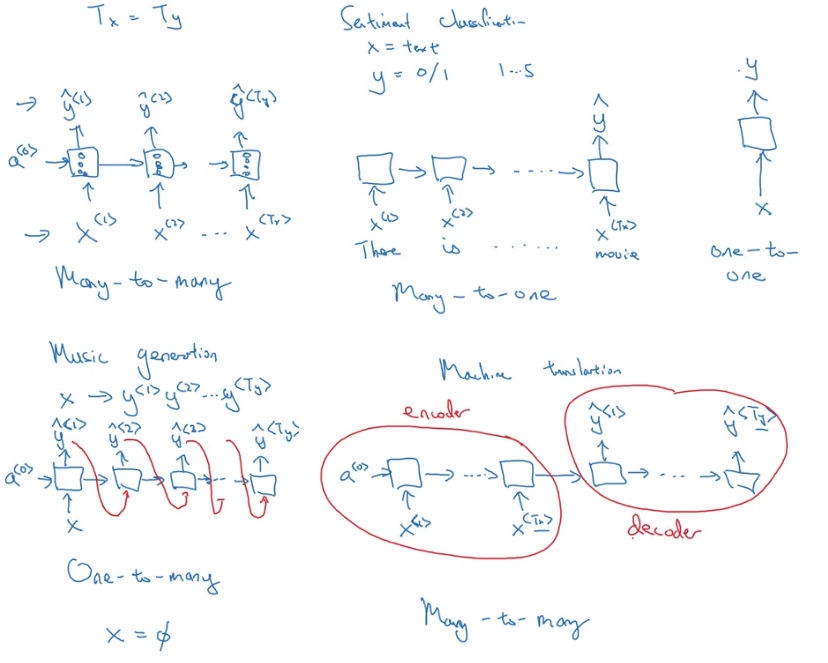 Tx = Ty
→ ŷ<1> ŷ<2> ŷ<Ty>
a<0>
→ x<1> x<2> ... x<Tx>
Many-to-many
Sentiment classification
x = text
y = 0/1 1...5
ŷ
x<1> x<2> ..... x<Tx>
There is ...... movie
Many-to-one
y
x
one-to-
one
Music generation
x → y<1> y<2> ... y<Ty>
ŷ<1> ŷ<2> ŷ<2> ŷ<Ty>
a<0> ...
x
One-to-many
x = ϕ
Machine translation
encoder
ŷ<1> ŷ<Ty>
a<0> .... ...
x<1> x<Tx>
decoder
Many-to-many